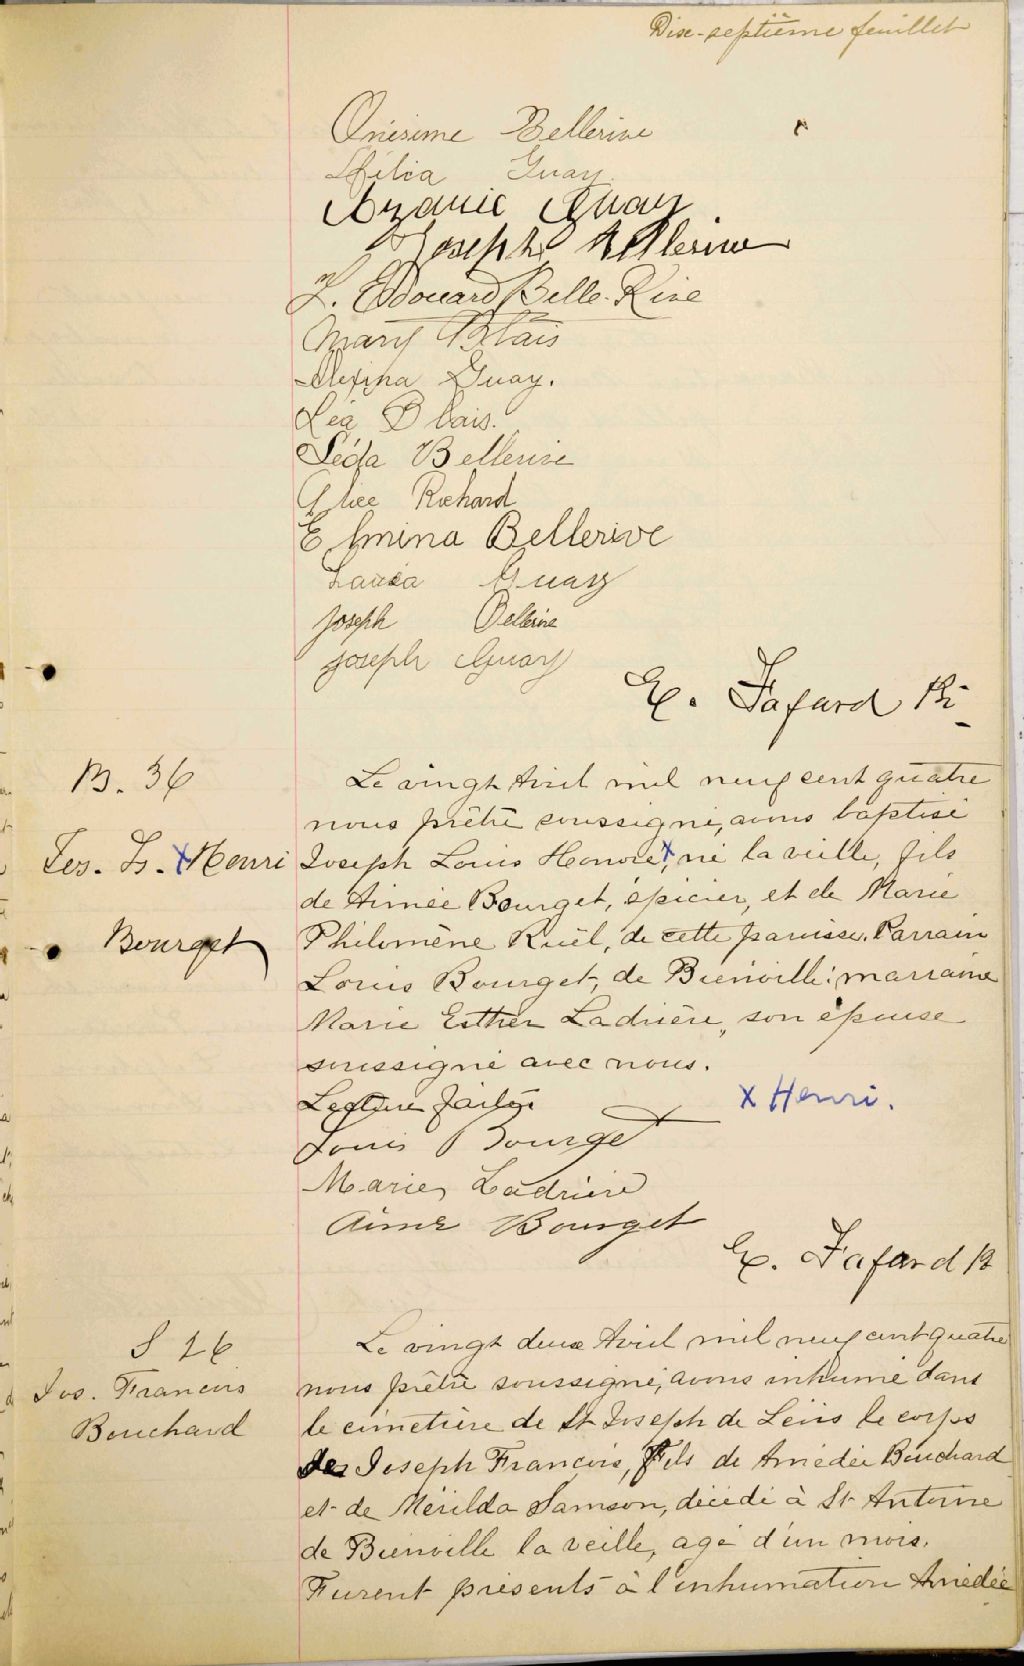 Dix-septième feuillet
Onésime Bellerive
Guay
Azarie Guay
Joseph Bellerive
L. Edouard Belle-Rive
Mary Blais
Alexina Guay.
Léa Blais.
Léda Bellerive
Alice Richard
Elmina Bellerive
Laura Guay
Joseph Bellerive
Joseph Guay
E. Fafard Ptr
B. 36
Jos. Ls. x Henri
Bourget
Le vingt Avril mil neuf cent quatre
nous prêtre soussigné, avons baptisé
Joseph Louis Honoré x, né la veille, fils
de Aimée Bourget, épicier, et de Marie
Philomène Ruël, de cette paroisse. Parrain
Louis Bourget, de Bienville: marraine
Marie Esther Ladrière, son épouse
soussigné avec nous.
Lecture faite
x Henri.
Louis Bourget
Marie Ladrière
Aimé Bourget
E. Fafard Ptr
S 26
Jos. Francois
Bouchard
Le vingt deux Avril mil neuf cent quatre
nous prêtre soussigné, avons inhumé dans
le cimetière de St Joseph de Lévis le corps
de Joseph François, Fils de Amédée Bouchard
et de Mérilda Samson, décédé à St Antoine
de Bienville la veille, agé d'un mois.
Furent présents à l'inhumation Amédée